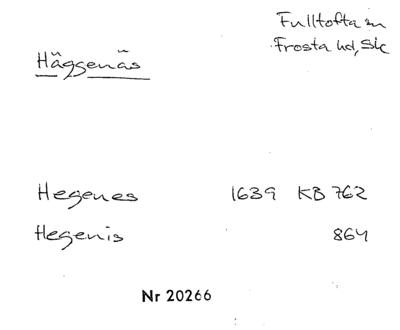 Fulltofta sn
Frosta hd, Sk
Häggenäs
Hegenes 1639 KB 762
Hegenis 864
Nr 20266